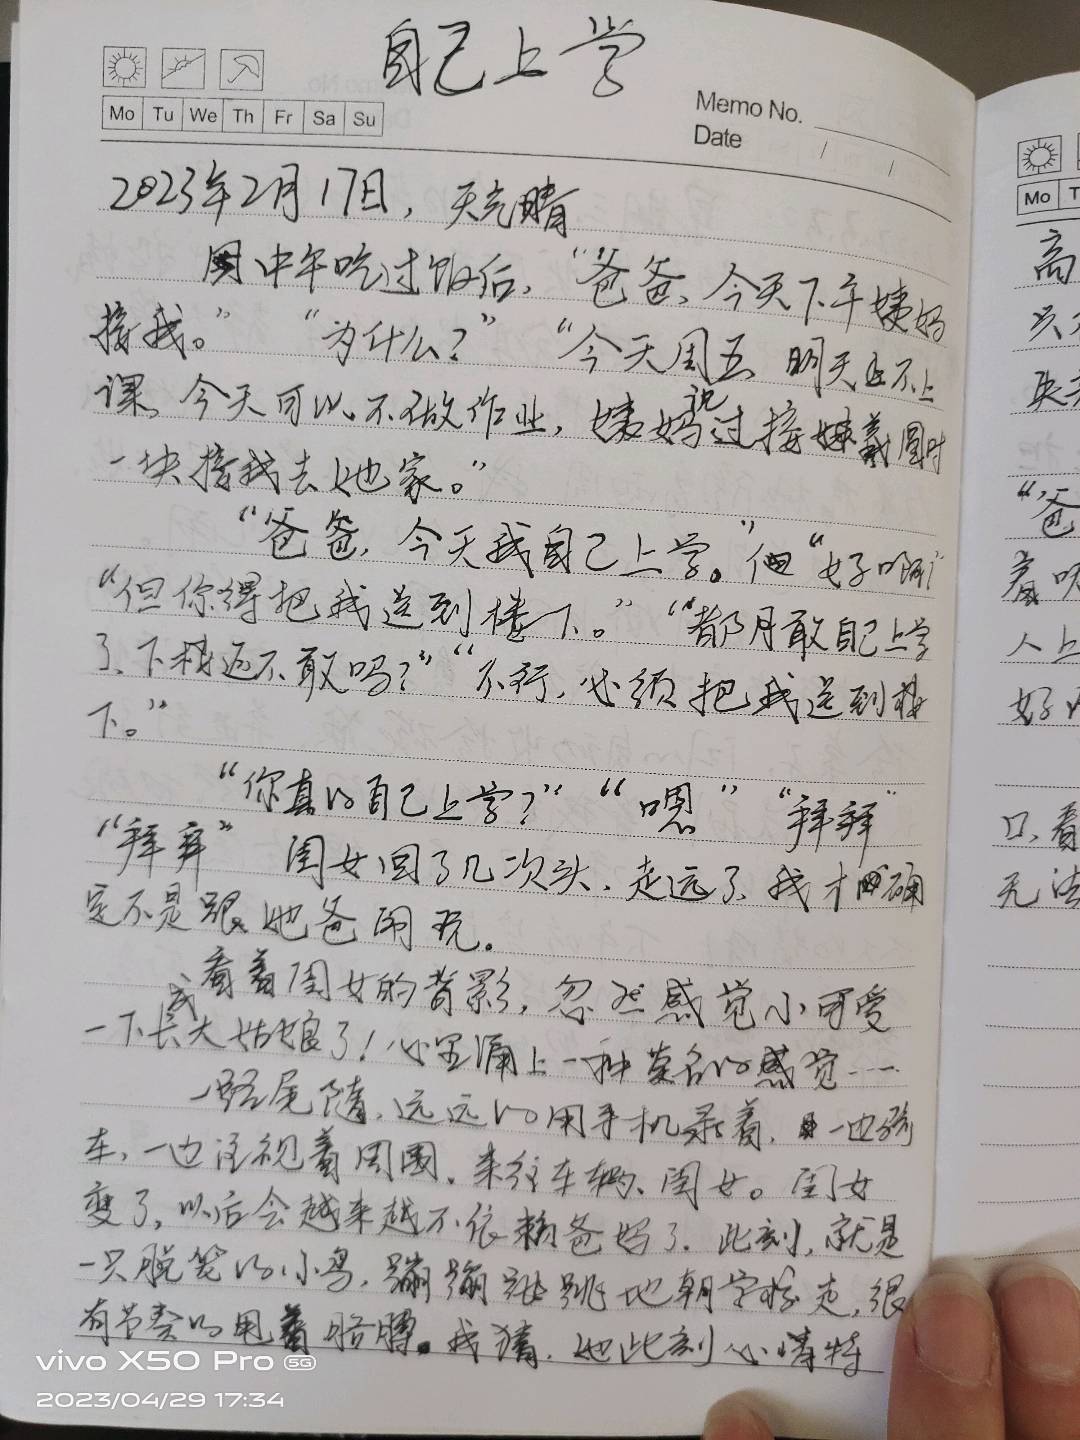 自己上学
Memo No.
Mo Tu We Th Fr Sa Su
Date / /
2023年2月17日，天气晴
中午吃过饭后，“爸爸，今天下午姨妈
接我。” “为什么？” “今天周五 明天又不上
课，今天可以不做作业，姨妈说过接姝羲园时
一块接我去她家。”
“爸爸，今天我自己上学。” “好啊”
“但你得把我送到楼下。” “都敢自己上学
了、下楼还不敢吗？” “不行，必须把我送到楼
下。”
“你真的自己上学？” “嗯” “拜拜”
“拜拜” 闺女回了几次头，走远了，我才确
定不是跟她爸闹玩。
看着闺女的背影，忽然感觉小可爱
一下长成大姑娘了！心里涌上一种莫名的感觉……
一路尾随，远远的用手机录着，一边骑
车，一边注视着周围、来往车辆、闺女。闺女
变了，以后会越来越不依赖爸妈了。此刻，就是
一只脱笼的小鸟，蹦蹦跳跳地朝学校走，很
有节奏的甩着胳膊。我猜，她此刻心情特
Mo T
高
只
“爸
着
人上
好
口，看
无法
vivo X50 Pro 5G
2023/04/29 17:34